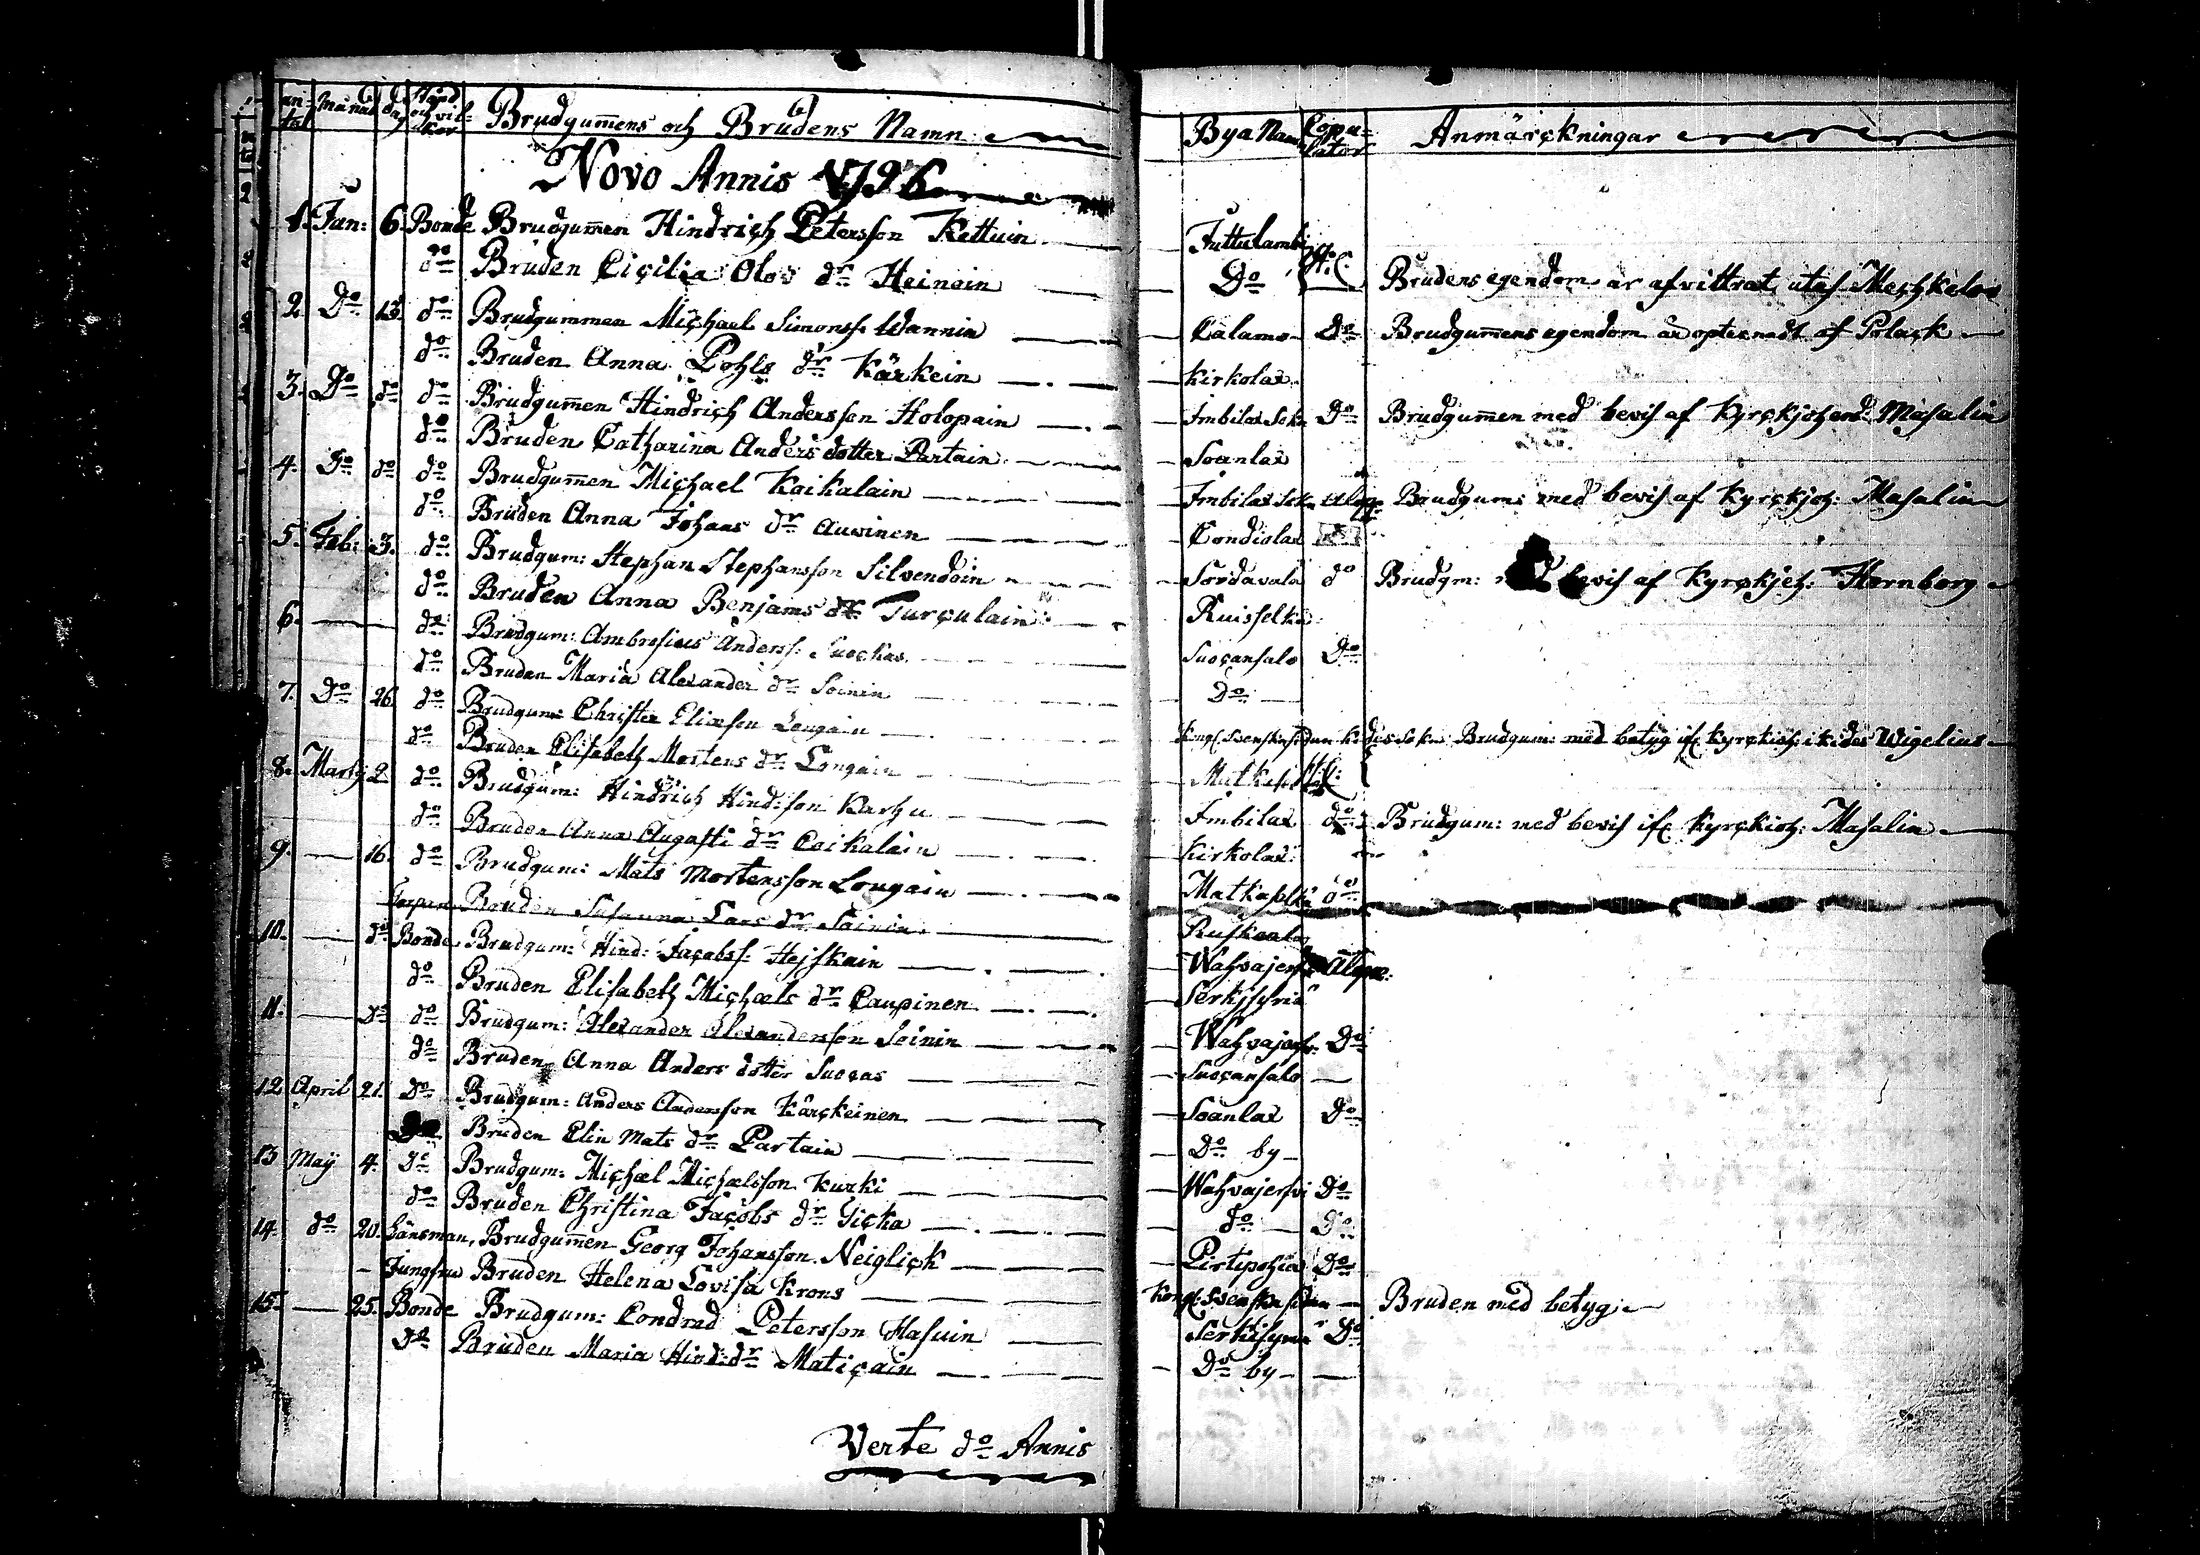 an-tal Månad dag Stånd och vil-kor Brudgum̅ens och Brudens Namn Bya Namn Copu-lator Anmärckningar
Novo Annis 1796
1. Jan: 6. Bonde Brudgum̅en Hindrich Petersson Kettuin
do Bruden Cicilia Olos dr Heinoin Do Brudens egendom är afvittrat utaf
2. Do 13. do Brudgummen Michael Simonss. Wannin Calamo Do Brudgum̅ens egendom är af Polack
do Bruden Anna Pohls dr Kärkein Kirkolax
3. Do do do Brudgum̅en Hindrich Andersson Holopain Imbilax Sokn Do Brudgum̅en med bevis af Kyrckjoherd: Masalin
do Bruden Catharina Anders dotter Partain Soanlax
4. Do do do Brudgum̅en Michael Koikalain Imbilax Sokn Brudgum: med bevis af Kyrckjoh: Masalin
do Bruden Anna Johans dr Auvinen Condiolax
5. Feb: 3. do Brudgum: Stephan Stephansson Silvendoin Sordavala do Brudgm: bevis af Kyrckjoh: Hornborg
do Bruden Anna Benjams dr Turculain Ruisselkä
6. do Brudgum: Ambrosius Anderss: Suockas Suocansalo Do
do Bruden Maria Alexander dr Soinin Do
7. Do 26. do Brudgum: Christer Eliæson Lougain Kongl. Svenska sidan Sokn Brudgum: med betyg if. Kyrckioh. Wigelius
do Bruden Elisabeth Mortens dr Lougain
8. Martij 2 do Brudgum: Hindrich Hind:son Karhu Imbilax do Brudgum: med bevis if. Kyrckioh: Masalin
do Bruden Anna Augusti dr Coikalain Kirkolax
9. 16. do Brudgum: Mats Mortensson Lougain Matkaselkä do
Bruden Susanna Lars dr Soinin Ruskeala
10. do Bonde Brudgum: Hind: Jacobss: Hejskain Wahvajerfvi
do Bruden Elisabeth Michæls dr Caupinen Serkisyriä
11. Do do Brudgum: Alexander Alexandersson Soinin Wahvajerfvi Do
do Bruden Anna Anders dotter Suocas Suocansalo
12 April 21. Do Brudgum: Anders Andersson Kärckeinen Soanlax Do
Do Bruden Elin Mats dr Partain Do by
13 Maij 4. Do Brudgum: Michæl Michælsson Kurki Wahvajerfvi Do
do Bruden Christina Jacobs dr Gicka do Do
14. do 20. Länsman, Brudgum̅en Georg Johansson Neiglick Pirtipohia Do
Jungfru Bruden Helena Lovisa Krons Kongl: Svenska sidan Bruden med betyg
15. 25. Bonde Brudgum: Condrad Petersson Hasuin Serkisyriä Do
Do Bruden Maria Hind: dr Maticain Do by
Verte do Annis